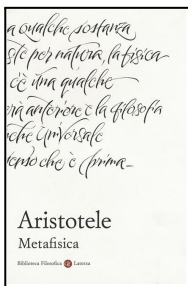 a qualche sostanza
per natura, la fisica
c'è una qualche
anteriore e la filosofia
universale
che è prima_
Aristotele
Metafisica
Biblioteca Filosofica Laterza